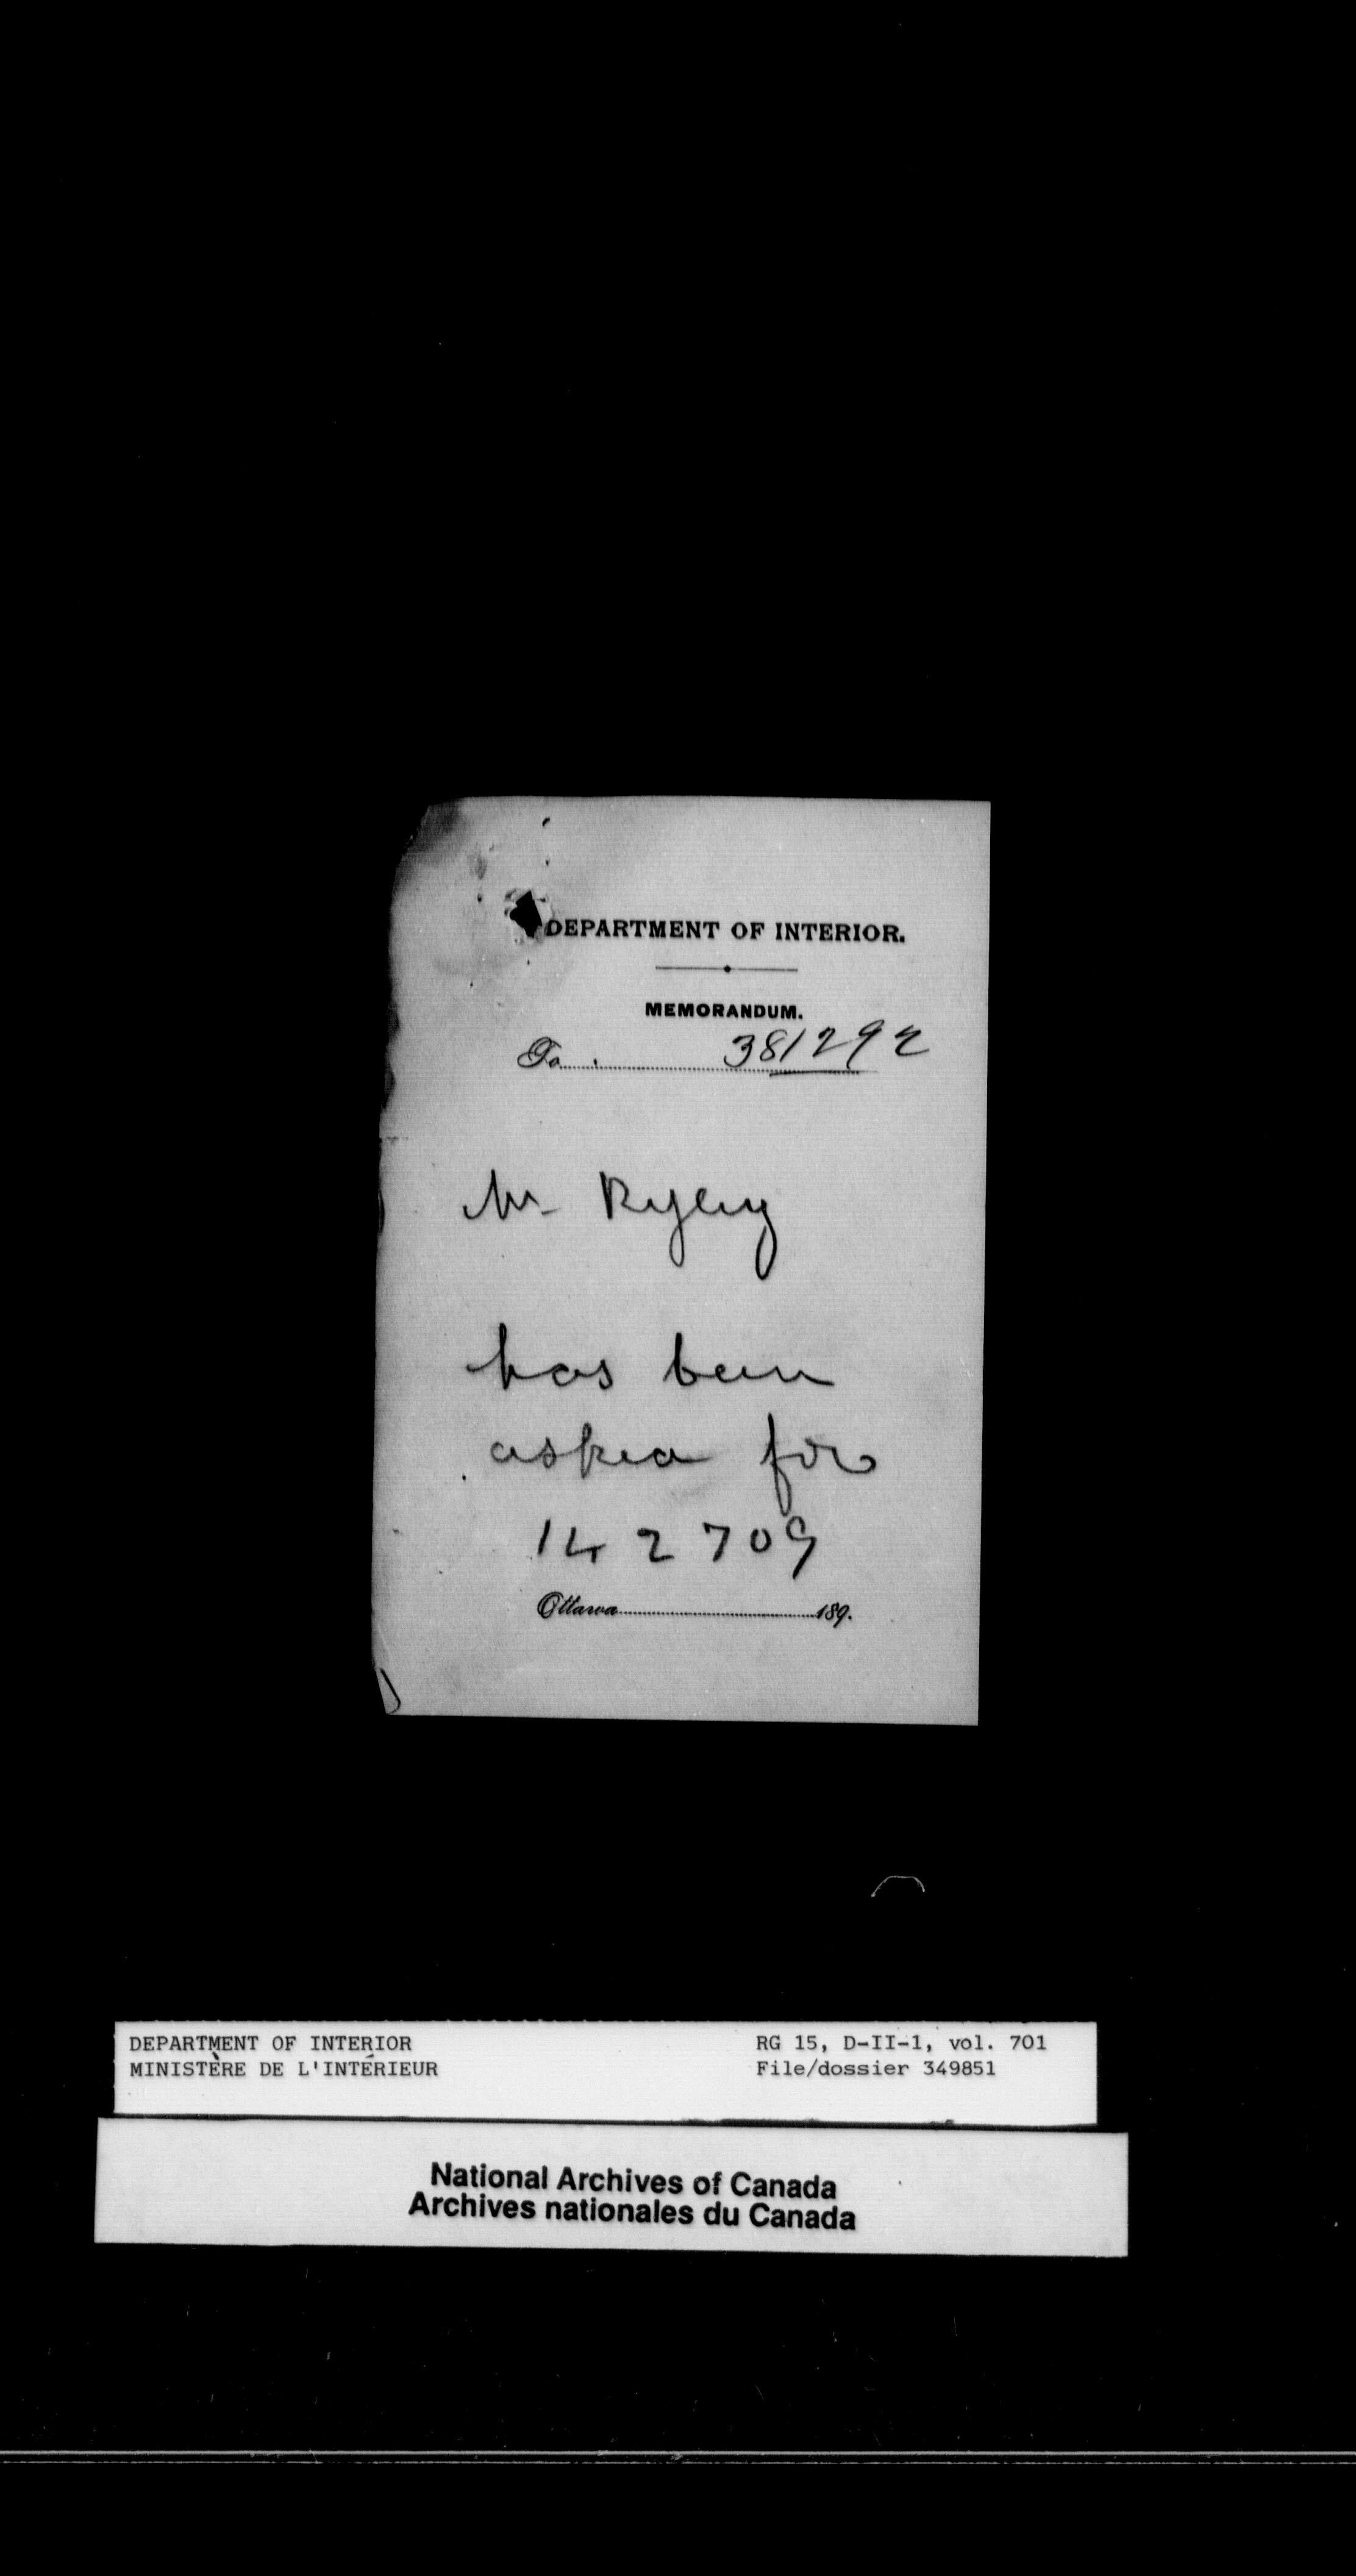 DEPARTMENT OF INTERIOR.
MEMORANDUM.
To 381292
Mr Ryley
has been
asked for
142709
Ottawa 189.
DEPARTMENT OF INTERIOR
MINISTÈRE DE L'INTÉRIEUR
RG 15, D-II-1, vol. 701
File/dossier 349851
National Archives of Canada
Archives nationales du Canada